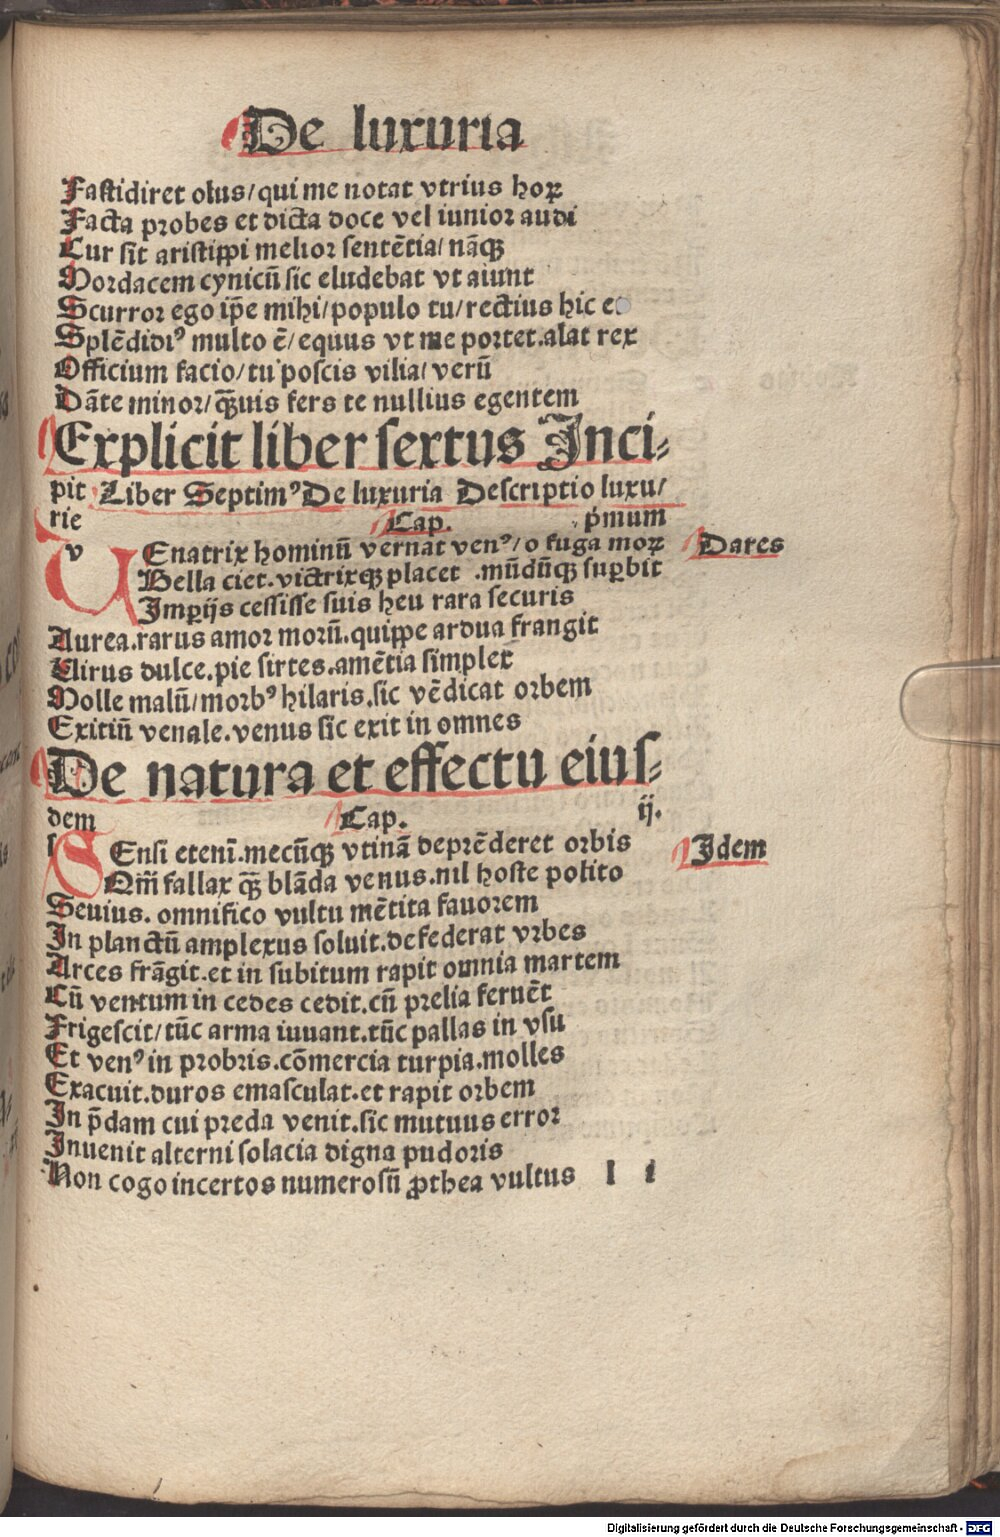 De luxuria
Fastidiret olus/qui me notat vtrius hoꝝ
Facta probes et dicta doce vel iunior audi
Cur sit aristippi melior sentētia/nāqꝫ
Mordacem cynicū sic eludebat vt aiunt
Scurror ego ip̄e mihi/populo tu/rectius hic e
Splēdidiꝰ multo ē/equus vt me portet.alat rex
Officium facio/tu poscis vilia/verū
Dāte minor/qꝫuis fers te nullius egentem
Explicit liber sextus Inci⸗
pit Liber Septimꝰ De luxuria Descriptio luxu/
rie Cap. pͥmum
v Enatrix hominū vernat venꝰ/o fuga moꝝ Dares
Bella ciet.victrixqꝫ placet .mūdūqꝫ suꝑbit
Imꝑijs cessisse suis heu rara securis
Aurea.rarus amor morū.quippe ardua frangit
Uirus dulce.pie sirtes.amētia simplex
Molle malū/morbꝰ hilaris.sic vēdicat orbem
Exitiū venale.venus sic exit in omnes
De natura et effectu eius⸗
dem Cap. ij.
s Ensi etenī.mecūqꝫ vtinā deprēderet orbis Idem
Qm̄ fallax qꝫ̄ blāda venus.nil hoste polito
Seuius. omnifico vultu mētita fauorem
In planctū amplexus soluit.defederat vrbes
Arces frāgit.et in subitum rapit omnia martem
Cū ventum in cedes cedit.cū prelia feruēt
Frigescit/tūc arma iuuant.tūc pallas in vsu
Et venꝰ in probris.cōmercia turpia.molles
Exacuit.duros emasculat.et rapit orbem
In p̄dam cui preda venit.sic mutuus error
Inuenit alterni solacia digna pudoris
Non cogo incertos numerosū ꝓthea vultus l i
Digitalisierung gefördert durch die Deutsche Forschungsgemeinschaft - DFG